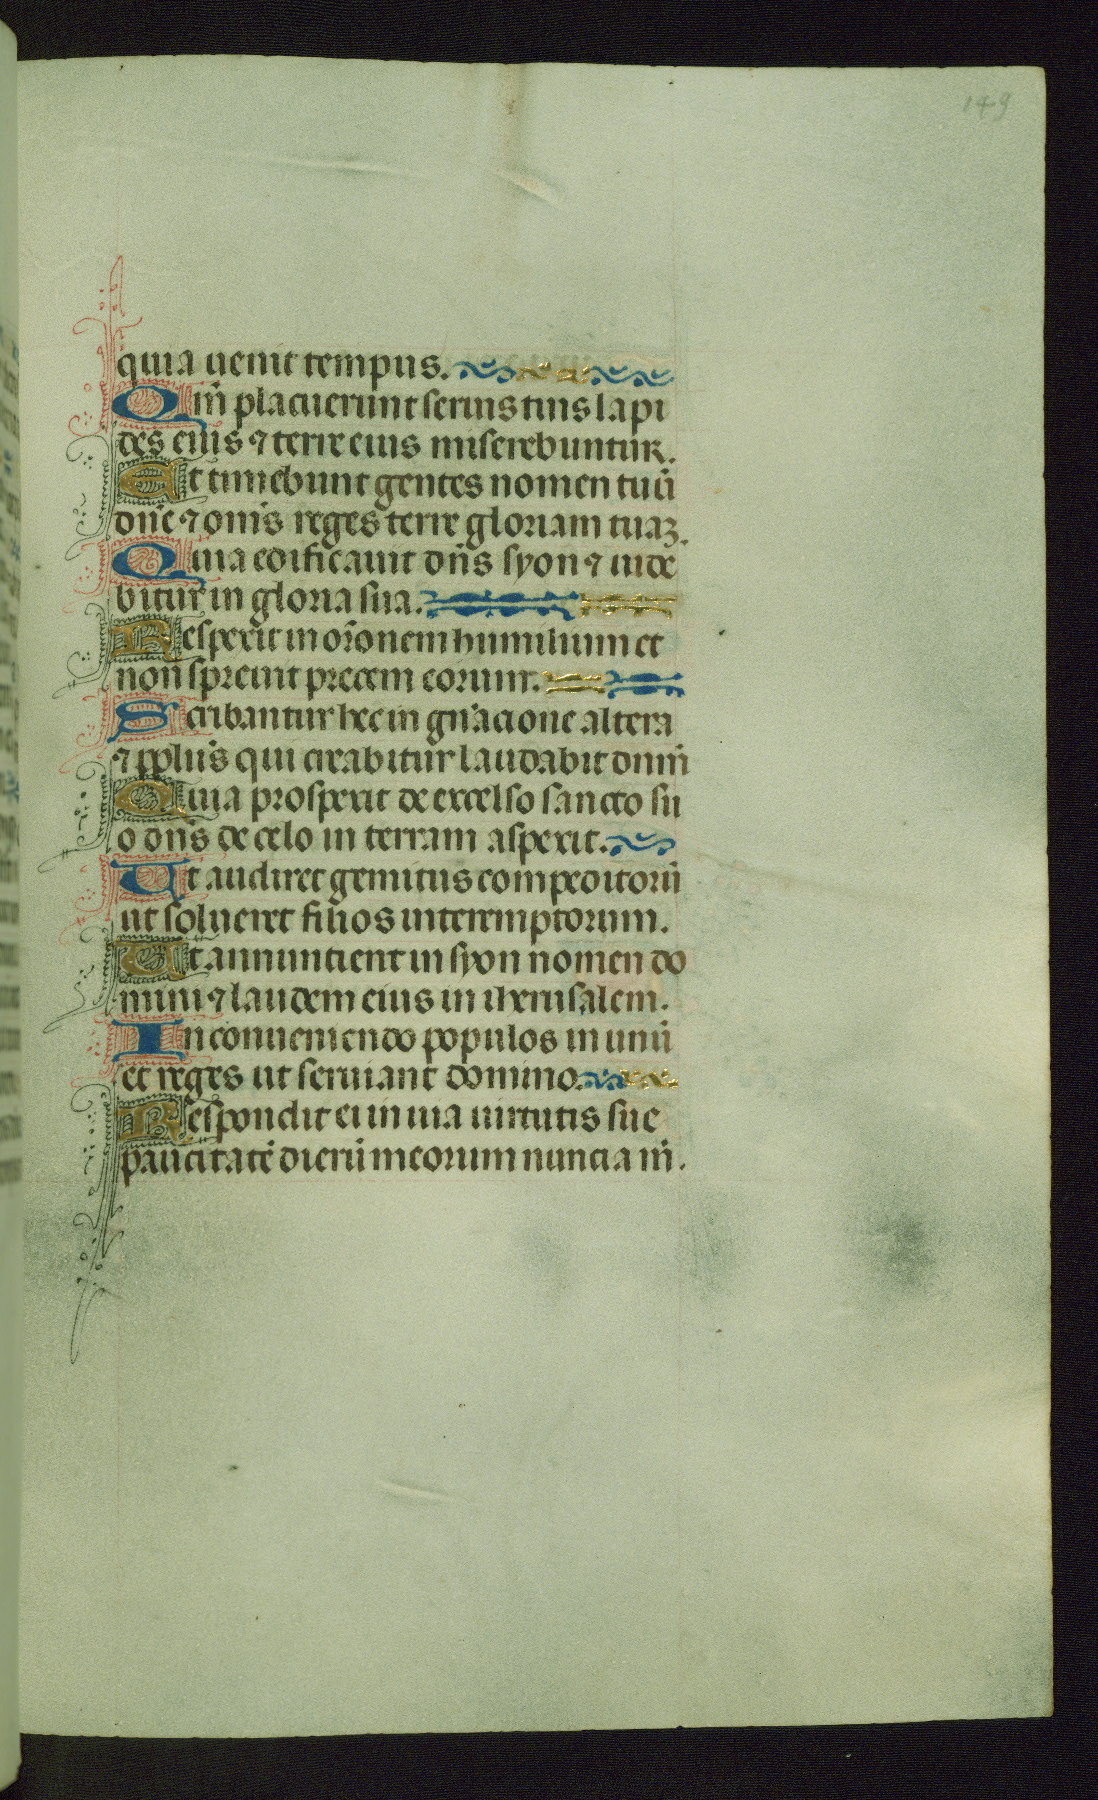 149
quia uenit tempus.
Qm̄ placuerunt seruis tuis lapi
des eius ⁊ terre eius miserebuntur.
Et timebunt gentes nomen tuū
dn̄e ⁊ om̄s reges terre gloriam tuaꝫ.
Quia edificauit dn̄s syon ⁊ uide
bitur in gloria sua.
Respexit in or̄onem humilium et
non spreuit precem eorum.
Scribantur hec in gn̄acione altera
⁊ pplūs qui creabitur laudabit dnm̄
Quia prospexit de excelso sancto su
o dn̄s de celo in terram aspexit.
Ut audiret gemitus compeditorū
ut solueret filios interemptorum.
Ut annuncient in syon nomen do
mini ⁊ laudem eius in iherusalem.
In conueniendo populos in unū
et reges ut seruiant domino.
Respondit ei in uia uirtutis sue
paucitatē dierū meorum nuncia m̄.